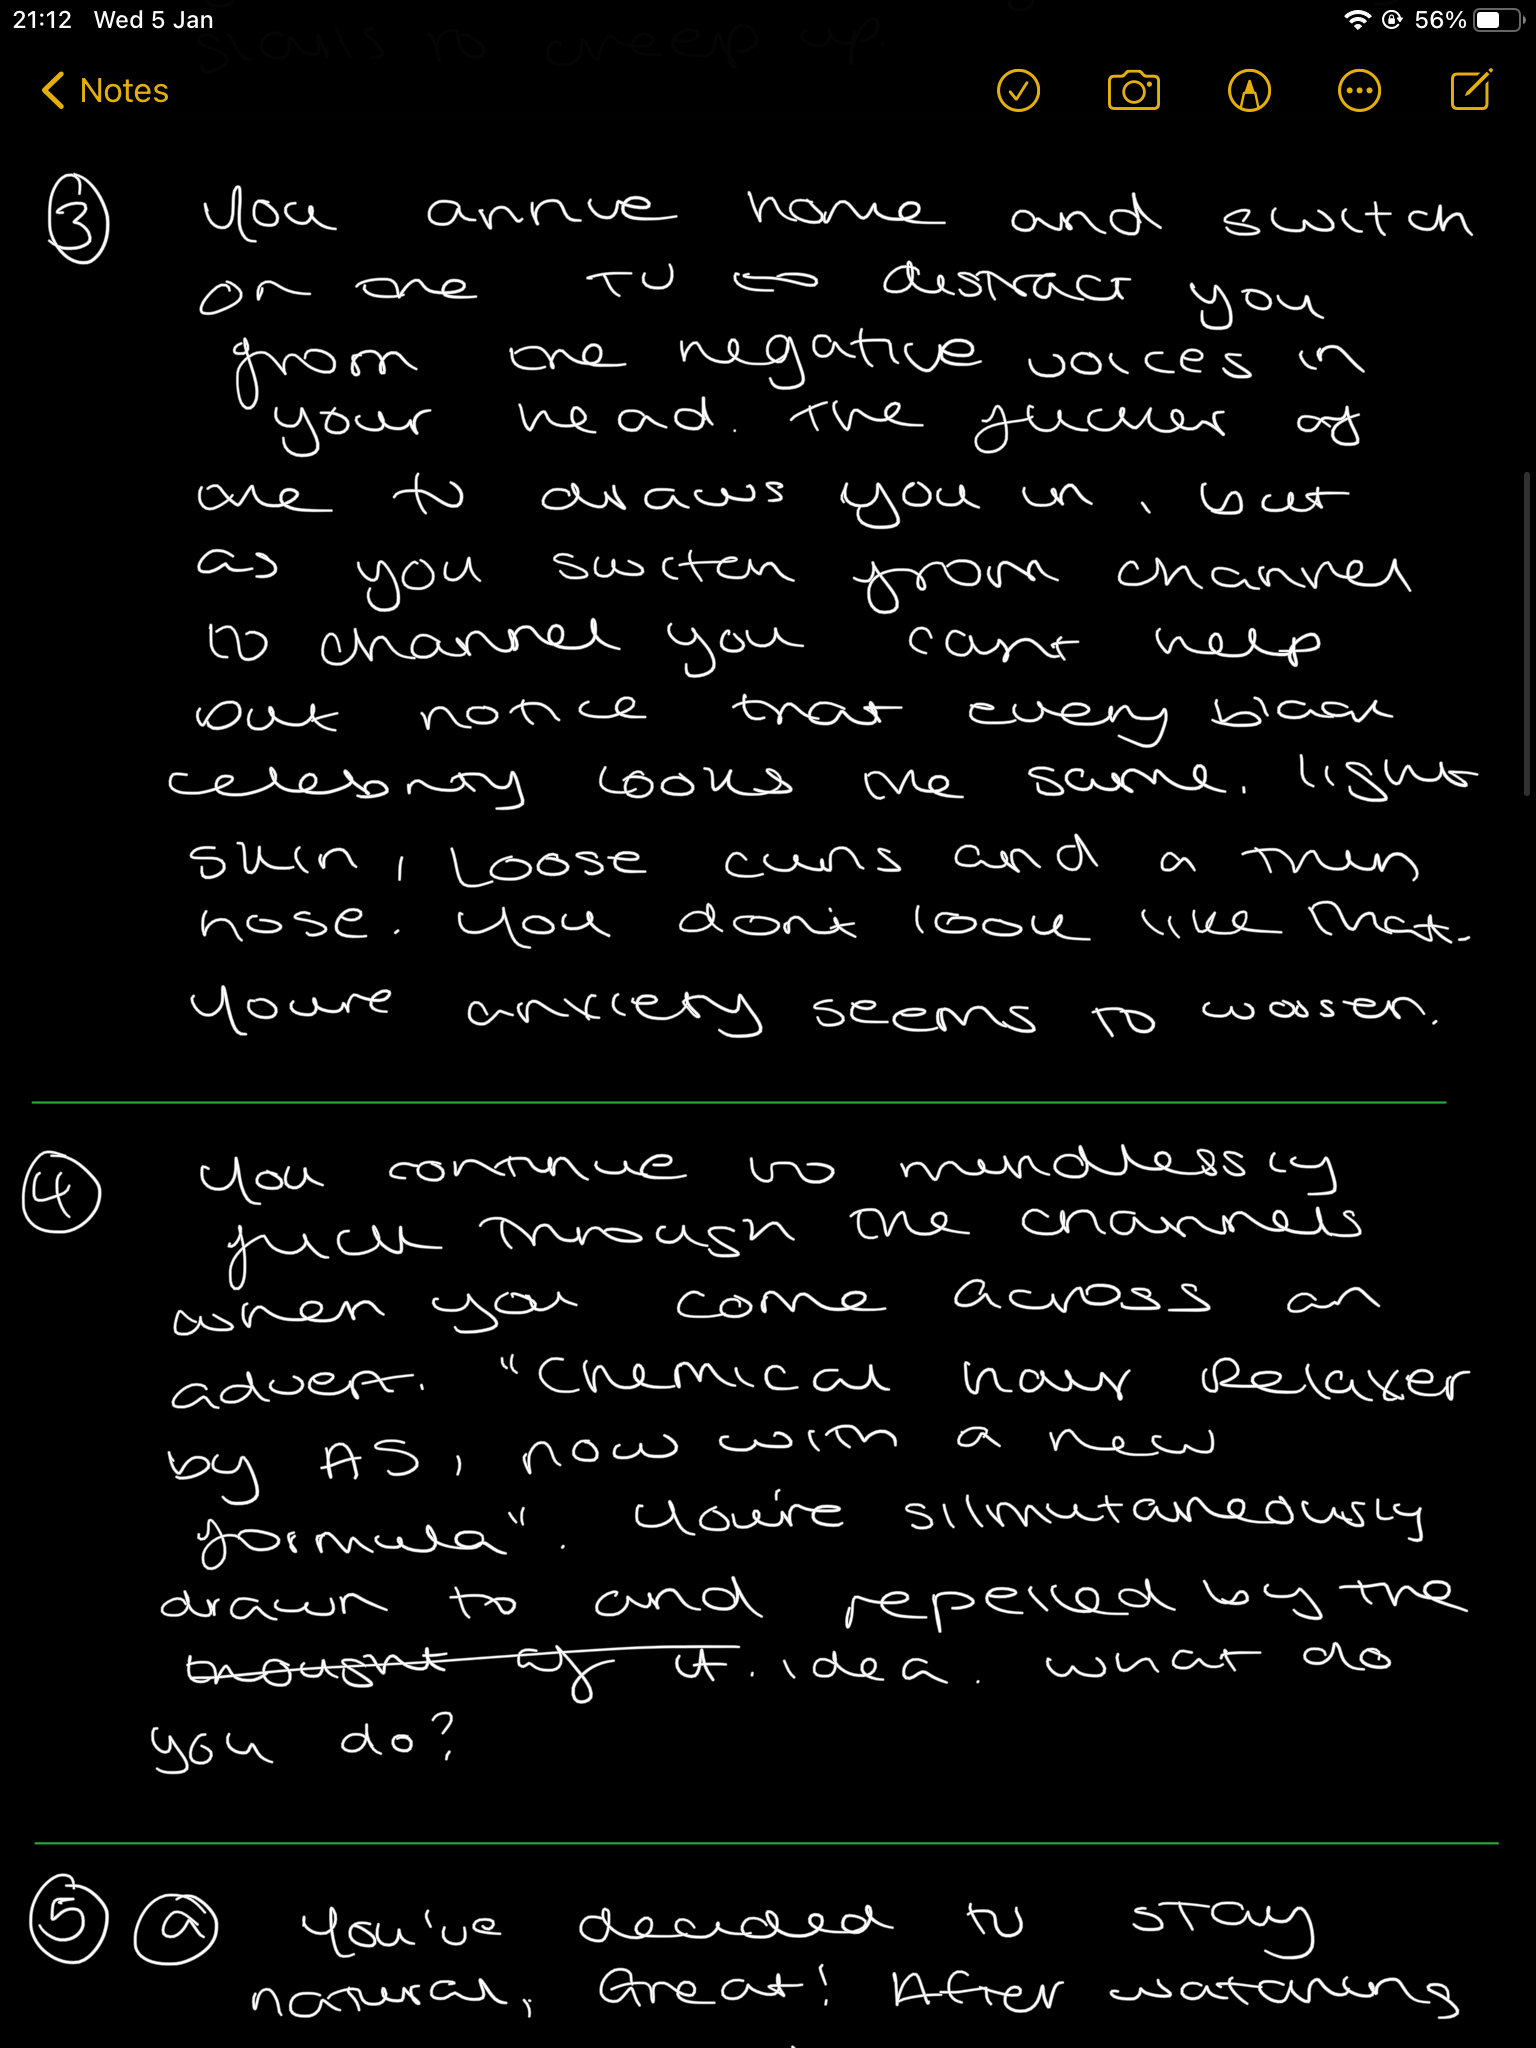 21:12 Wed 5 Jan 56%
starts to creep up.
Notes
3 You arrive home and switch
on the TV to distract you
from the negative voices in
your head. The flicker of
the tv draws you in, but
as you switch from channel
to channel you cant help
but notice that every black
celebrity looks the same. light
skin, Loose curls and a thin
nose. You don't look like that.
Youre anxiety seems to worsen.
4 You continue to mindlessly
flick through the channels
when you come across an
advert. "Chemical hair Relaxer
by AS, now with a new
formula". You're silmutaneously
drawn to and repelled by the
thought of it. idea. what do
you do?
5 a You've decided to stay
natural, Great! After watching